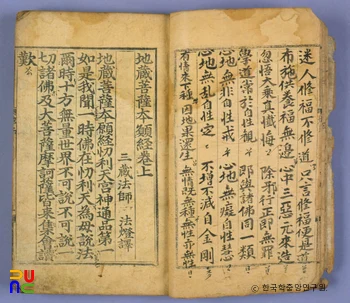 迷人修福不修道 只言修福便是道
布施供養福無邊 心中三惡元來造
忽悟大乘真懺悔 除邪行正即無罪
學道常於自性觀 即與諸佛同一類
心地無非自性戒 心地無癡自性慧
心地無亂自性定 不增不減自金剛
有情來下種 因地果還生 無情既無種 無性亦無生
地藏菩薩本願經卷上
三藏法師 法燈譯
地藏菩薩本願經忉利天宮神通品第
如是我聞一時佛在忉利天爲母說法
爾時十方無量世界不可說不可說一
切諸佛及大菩薩摩訶薩皆來集會讚
歎
© 한국학중앙연구원